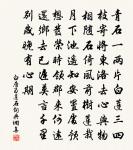 青石一兩片白蓮三四
枝寄將東洛去心與物
相隨石倚風前樹蓮栽
月下池遙知安置日預
想發榮時領郡來何遠
還鄉去已遲莫言千里
別歲晚有心期
白居易蓮石